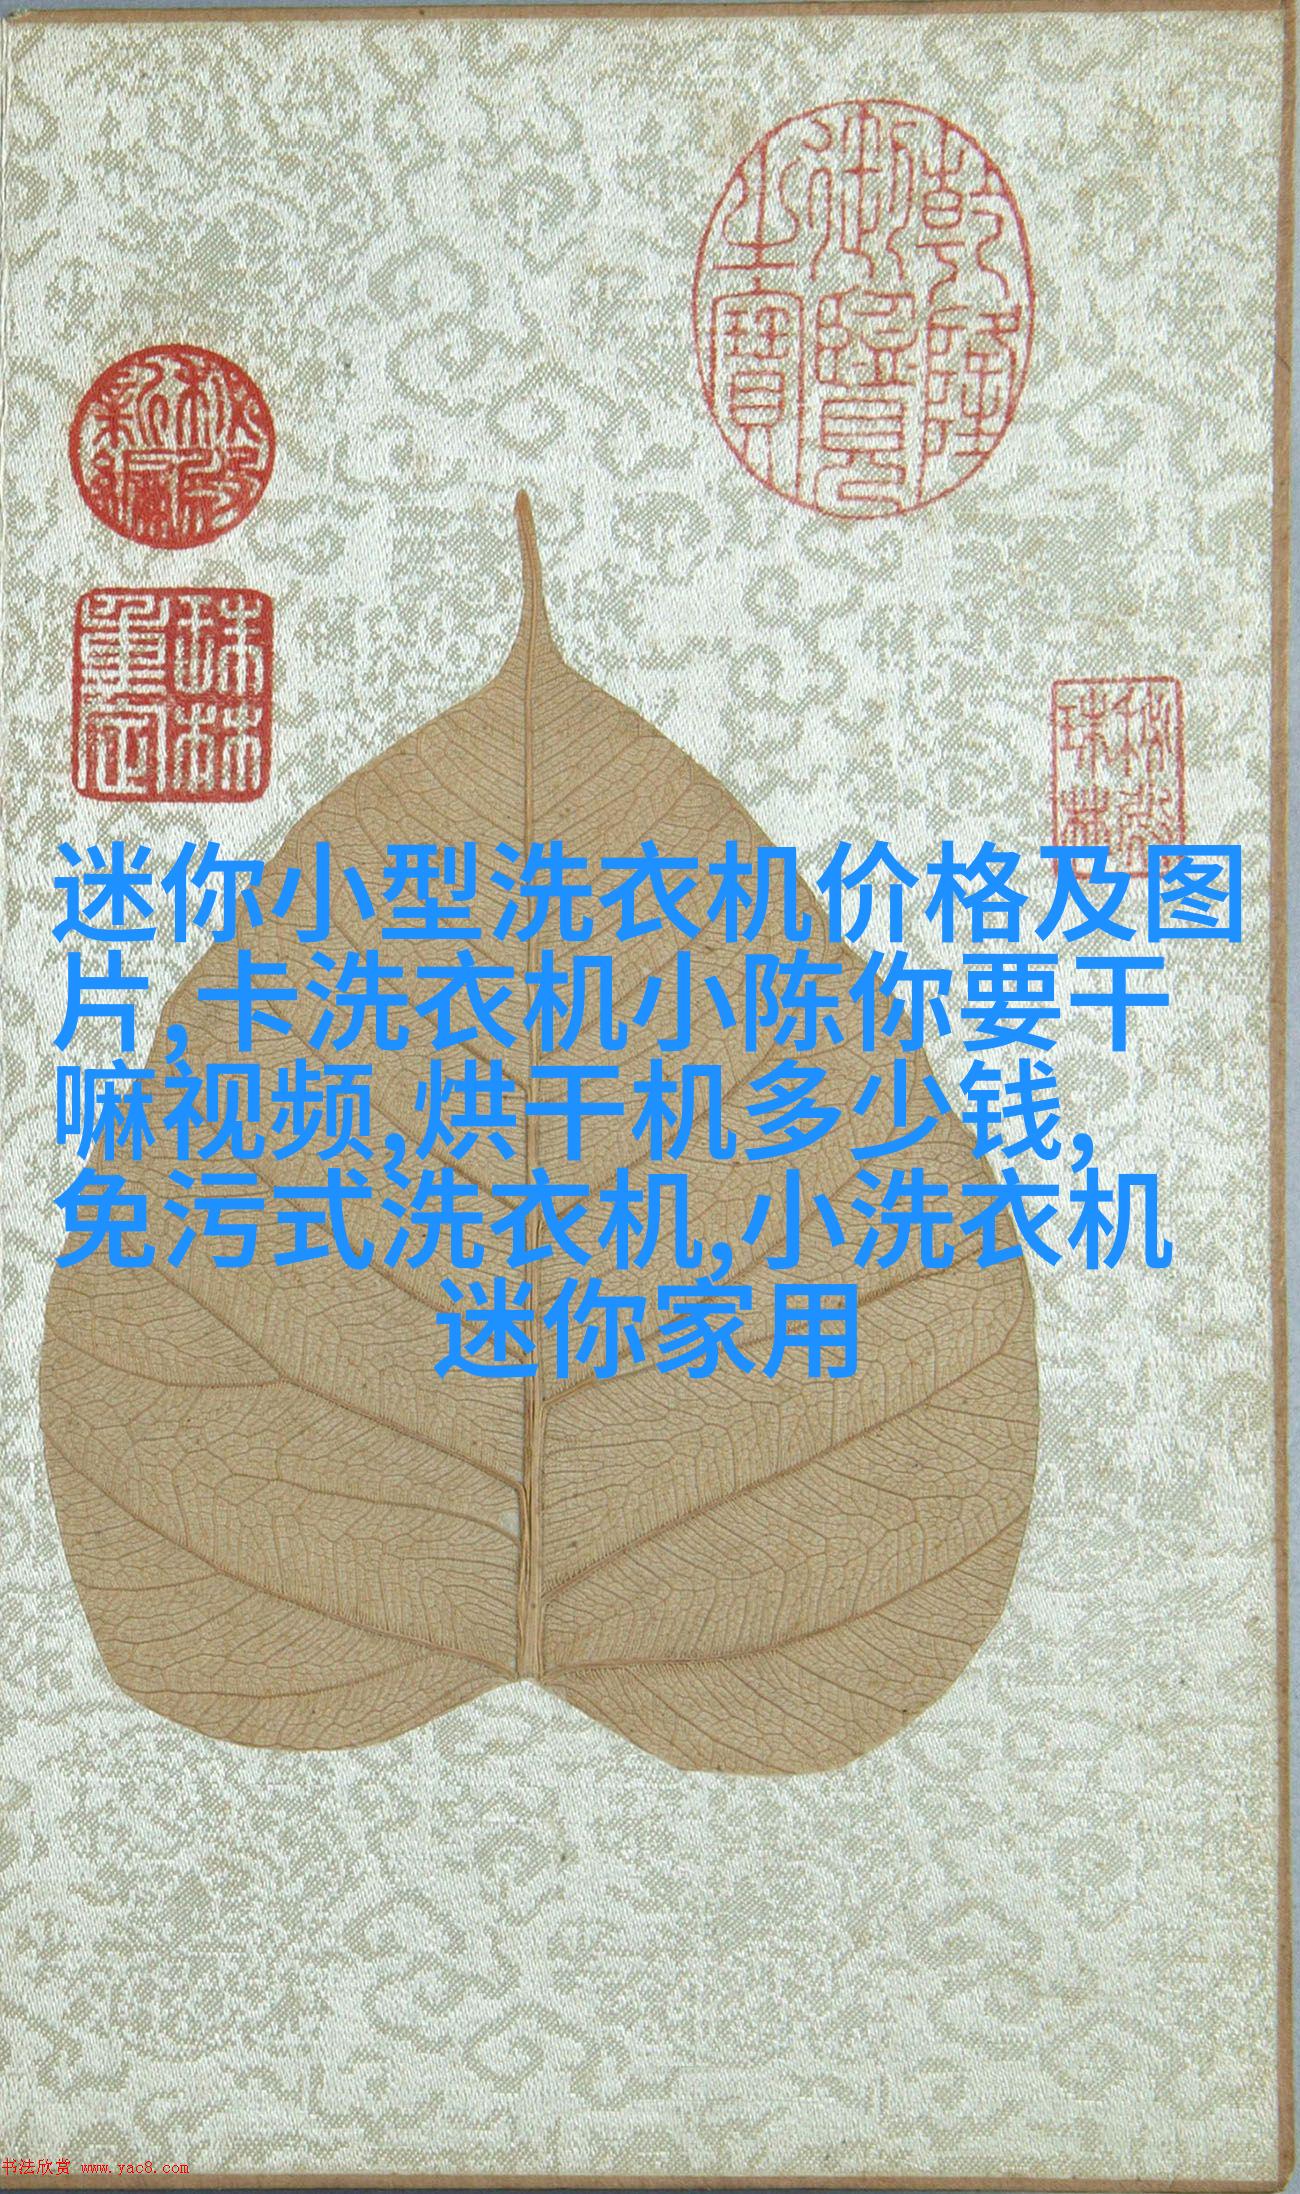 乾隆
御覽
之寶
秘殿
新編
珠林
重定
秘殿
珠林
迷你小型洗衣机价格及图
片,卡洗衣机小陈你要干
嘛视频,烘干机多少钱,
免污式洗衣机,小洗衣机
迷你家用
书法欣赏 www.yac8.com